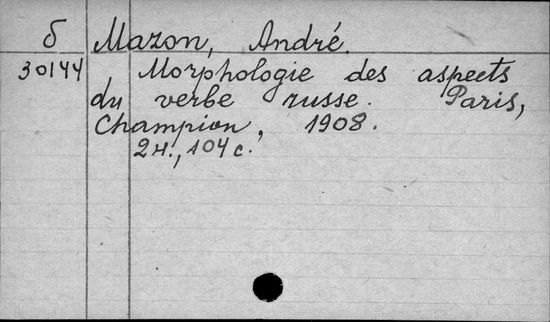 б Mazon, André.
30144 Morphologie des aspects
du verbe russe. Paris,
Champion, 1908.
2н., 104 с.